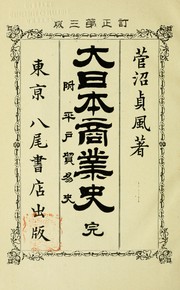 訂正第三版
菅沼貞風著
大日本商業史 完
附平戸貿易史
東京 八尾書店出版